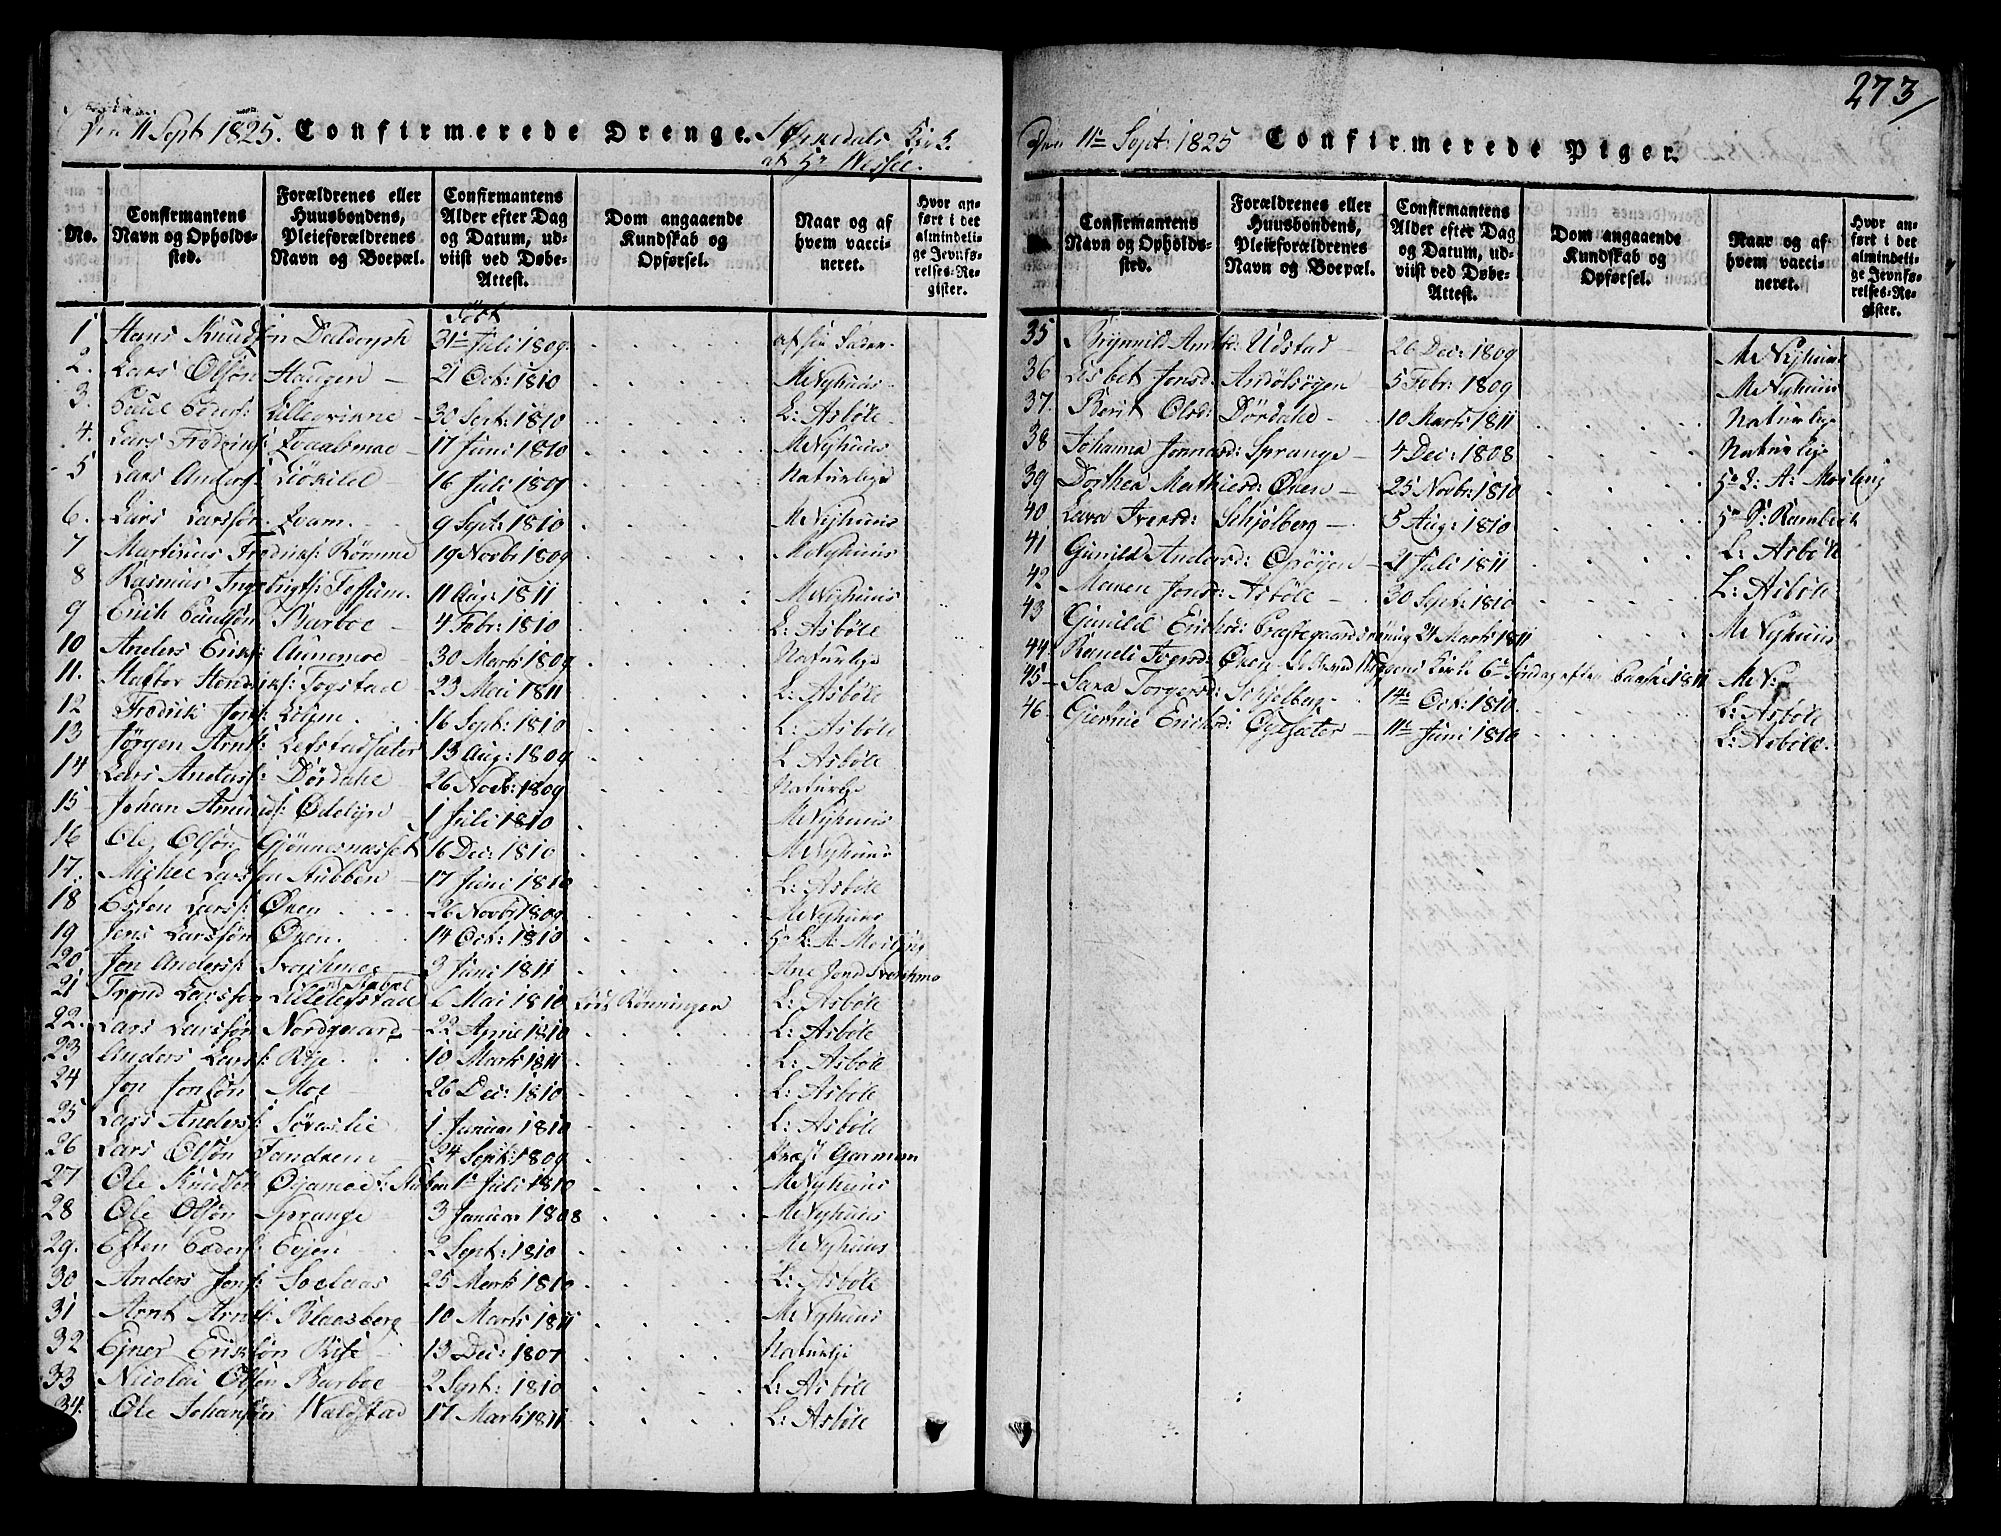 273
Den 11 Sept 1825. Confirmerede Drenge. i Ørkedals Kirke
af Hr Wessel.
No.
Confirmantens Navn og Opholdssted.
Forældrenes eller Huusbondens, Pleieforældrenes Navn og Boepæl.
Confirmantens Alder efter Dag og Datum, udviist ved Døbe-Attest.
Dom angaaende Kundskab og Opførsel.
Naar og af hvem vaccineret.
Hvor anført i det almindelige Jevnførelses-Register.
født
1 Hans Knudsøn Daldorph 31te Juli 1809. af sin Fader.
2. Lars Olsøn Haugen 21 Oct: 1810 M Nyhuus
3. Poul Peders: Lillequinne 30 Sept: 1810 L: Asbøle
4. Lars Fredriks: Evaalsmoe 17 Juni 1810 M Nyhuus
5 Lars Anders: 16 Juli 1809 Naturlige
6. Lars Larssøn Evam 9 Sept: 1810 M Nyhuus
7 Martinus Fredriks: Rømme 19 Novbr 1809 M Nyhuus
8 Rasmus Ingebrigts: Fossum 11 Aug: 1811 M Nyhuus
9 Erich Paulsøn Barboe 4 Febr: 1810 L: Asbøle
10 Anders Eriks: Aunemoe 30 Marti 1809 Naturlige
11. Haftor Hendriks: Fogstad 23 Mai 1811 L: Asbøle
12 Fredrik Jons: 16 Sept: 1810 L: Asbøle
13 Jørgen Arnts: Lefstadsæter 13 Aug: 1809 L Asbøle
14 Lars Anders: Dørdahl 26 Novbr: 1809 Naturlige
15 Johan Amunds: Ødelyn 1 Juli 1810 M Nyhuus
16 Ole Olsøn Gjønnesmæsset 16 Dec: 1810 M Nyhuus
17. Michel Larsøn Stubben 17 Juni 1810 L: Asbøle
18 Esten Larss: Øren 26 Novbr 1809 M Nyhuus
19 Jens Larssøn Øren. 14 Oct: 1810 Hr L: A: Mosling
20 Jon Anders: Svorkmoe 3 Juni 1811 Ane Jonsd Svorkmo
21 Trond Larssøn Lillelefstad 6 Mai 1810 Lars Rønningen L: Asbøle
22. Lars Larssøn Nordgaard 22 April 1810 L: Asbøle
23 Anders Lars: Rije 10 Marti 1811 L: Asbøle
24 Jon Jonsøn Moe 26 Dec: 1810 L: Asbøle
25 Lars Anders: Søraslie 1 Januar 1810 L: Asbøle
26 Lars Olsøn Fandrem 24 Sept: 1809 Præst Garmann
27 Ole Knudsøn Øyamoe: Stubben 1te Juli 1810 M Nyhuus
28 Ole Olsøn Sprange 3 Januar 1808 M Nyhuus
29. Esten Peders: Evjen 2 Sept: 1810 M Nyhuus
30 Anders Jons: Solaas 25 Marti 1810 L: Asbøle
31 Arnt Arnts: Blaasberg 10 Marti 1811 M Nyhuus
32 Ejner Eriksøn Rise 13 Dec: 1807 Naturlig
33 Nicolai Olsøn Barboe 2 Sept: 1810 L: Asbøle
34. Ole Johansøn Waldstad 17 Marti 1811 L: Asbøle
Den 11te Sept: 1825 Confirmerede Piger.
Confirmantens Navn og Opholdssted.
Forældrenes eller Huusbondens, Pleieforældrenes Navn og Boepæl.
Confirmantens Alder efter Dag og Datum, udviist ved Døbe-Attest.
Dom angaaende Kundskab og Opførsel.
Naar og af hvem vaccineret.
Hvor anført i det almindelige Jevnførelses-Register.
35 Brynnild Arntsd: Udstad 26 Dec: 1809 M Nyhuus
36 Lisbet Jonsd: Andølsøyen 5 Febr: 1809 M Nyhuus
37. Berit Olsd: Dørdahl 10 Marti 1811 Naturlige
38 Johanna Jonnasd: Sprange 4 Dec: 1808 Naturlige
39 Dorthea Mathiesd: Øren 25 Novbr: 1810 Hr L: A: Mosling
40 Lava Iversd: Schjølberg 5 Aug: 1810 Hr P: Rambech
41 Gunild Andersd: Øyøyen 21 Juli 1811 L: Asbøle
42 Maren Jonsd: Asbøle 30 Sept: 1810 L: Asbøle
43 Gunild Erichsd: Præstegaardsrøning 24 Marti 1811 M Nyhuus
44 Randi Iversd: Øren født ved Kirke 6te Søndag efter Paaske 1811 M N
45 Sara Torgersd: Schjølberg 14te Oct: 1810 L: Asbøle
46 Gjertrue Erichsd: Øyesæter 11te Juni 1810 L: Asbøle.